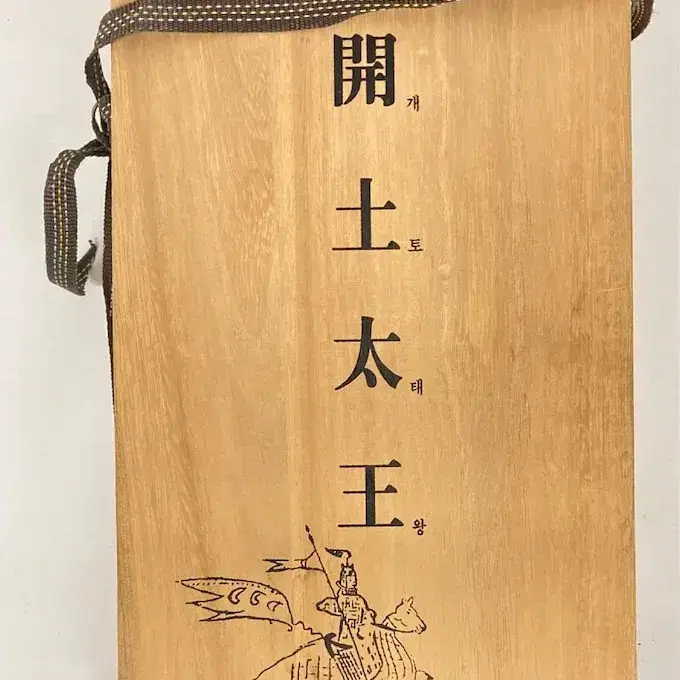 開개
土토
太태
王왕